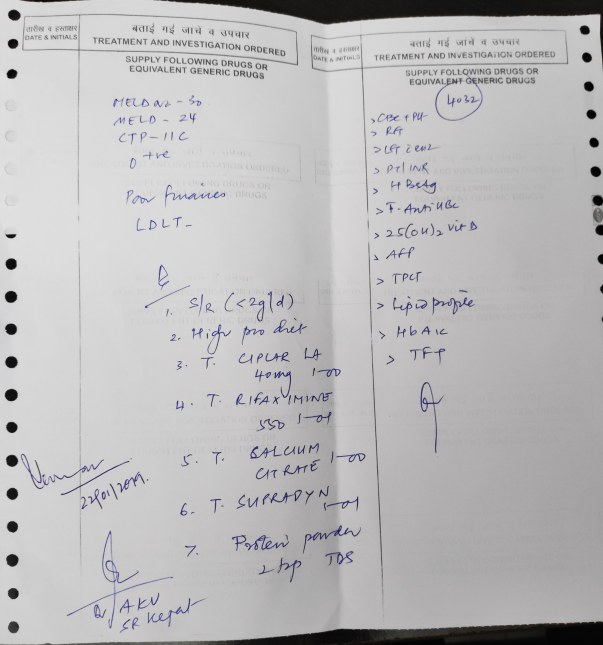 तारीख व हस्ताक्षर
DATE & INITIALS
बताई गई जांचें व उपचार
TREATMENT AND INVESTIGATION ORDERED
SUPPLY FOLLOWING DRUGS OR
EQUIVALENT GENERIC DRUGS
MELDNa - 30
MELD - 24
CTP - 11C
O +ve
Poor finances
LDLT -
1. S/R (<2g/d)
2. High pro diet
3. T. CIPLAR LA
40mg 1-00
4. T. RIFAXIMINE
550 1-01
5. T. CALCIUM
CITRATE 1-00
6. T. SUPRADYN
1-01
7. Protein powder
2 tsp TDS
22/01/2019.
AKV
SR Hepat
तारीख व हस्ताक्षर
DATE & INITIALS
बताई गई जांचें व उपचार
TREATMENT AND INVESTIGATION ORDERED
SUPPLY FOLLOWING DRUGS OR
EQUIVALENT GENERIC DRUGS
4032
> CBC + PLt
> LFT
> PT/INR
> HBsAg
> T-Anti HBc
> 25(OH)2 vit D
> AFP
> TPCT
> Lipid profile
> HbA1c
> TFT